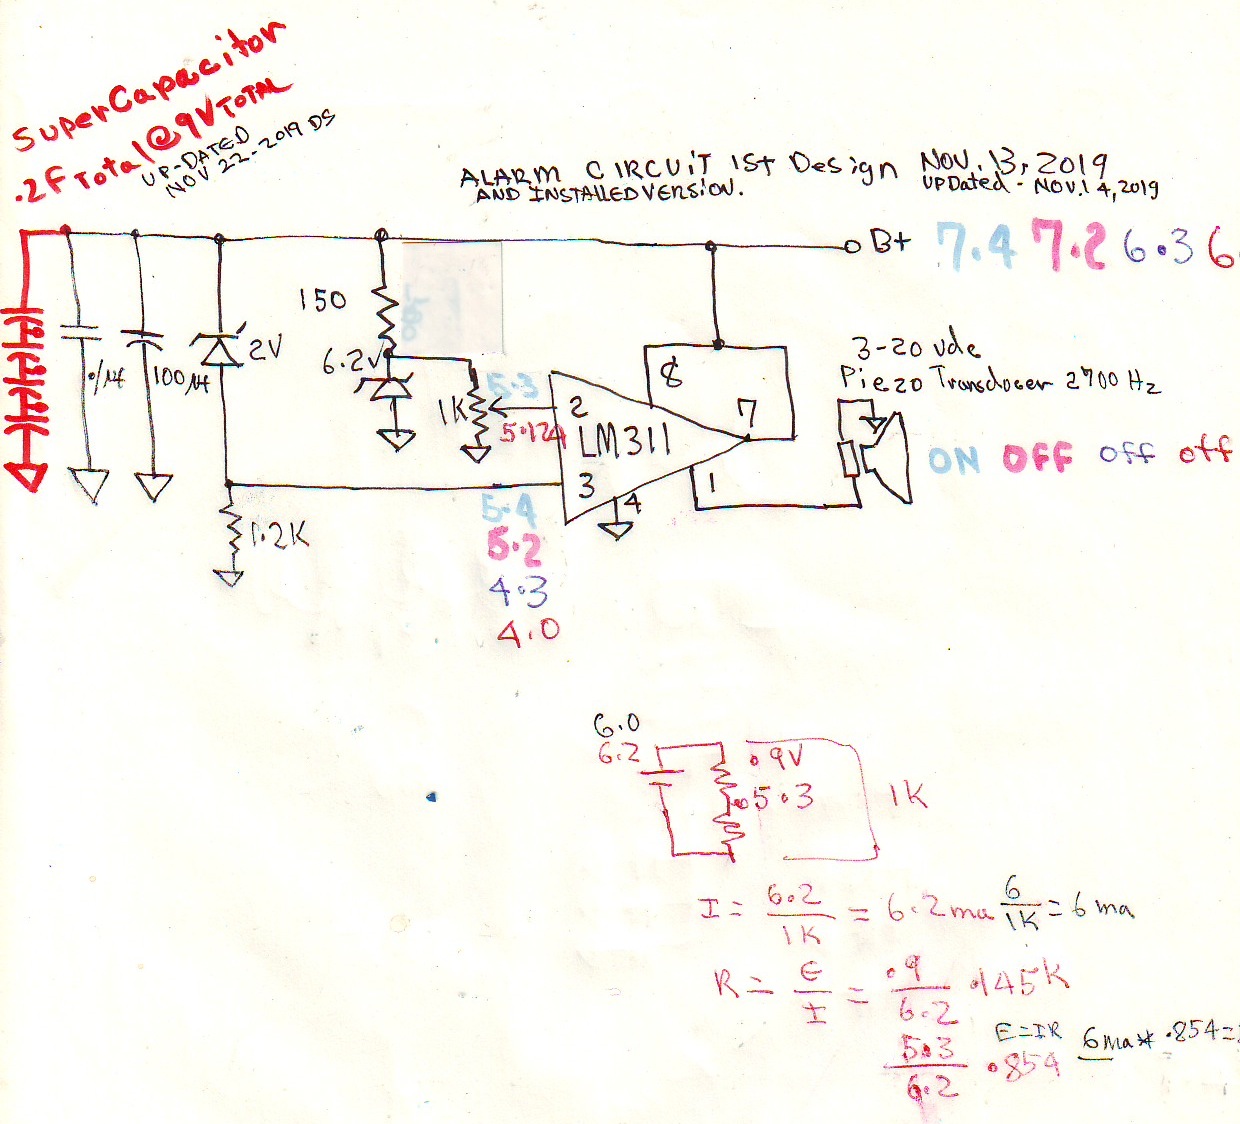 SuperCapacitor
.2F Total @ 9V TOTAL
UP-DATED
NOV 22-2019 DS
ALARM CIRCUIT 1st Design NOV. 13, 2019
AND INSTALLED VERSION.
UPDated - NOV.14, 2019
B+ 7.4 7.2 6.3 6.
150
2V
6.2V
.1µf
100µf
1K
5.3
5.124
2
LM311
3
8
7
4
1
3-20 vdc
Piezo Transducer 2700 Hz
ON OFF OFF off
1.2K
5.4
5.2
4.3
4.0
6.0
6.2
.9V
5.3
1K
I = 6.2/1K = 6.2ma 6/1K = 6ma
R = E/I = .9/6.2 .145K
5.3/6.2 .854
E=IR 6ma* .854=